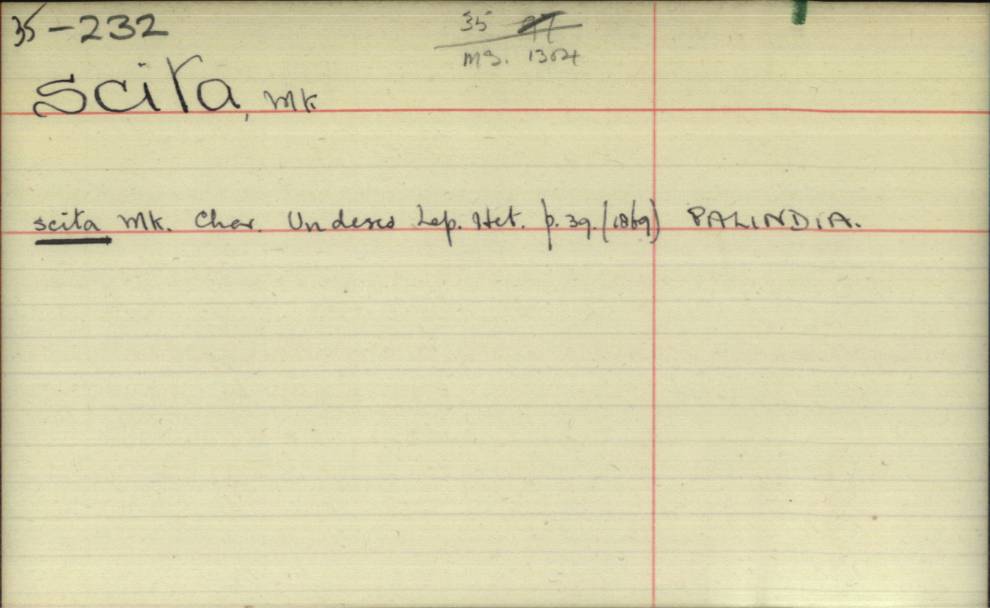 35-232
35
MS. 1304
scita, Mk
scita Mk. Char. Undescs Lep. Het. p. 39. (1869) PALINDIA.